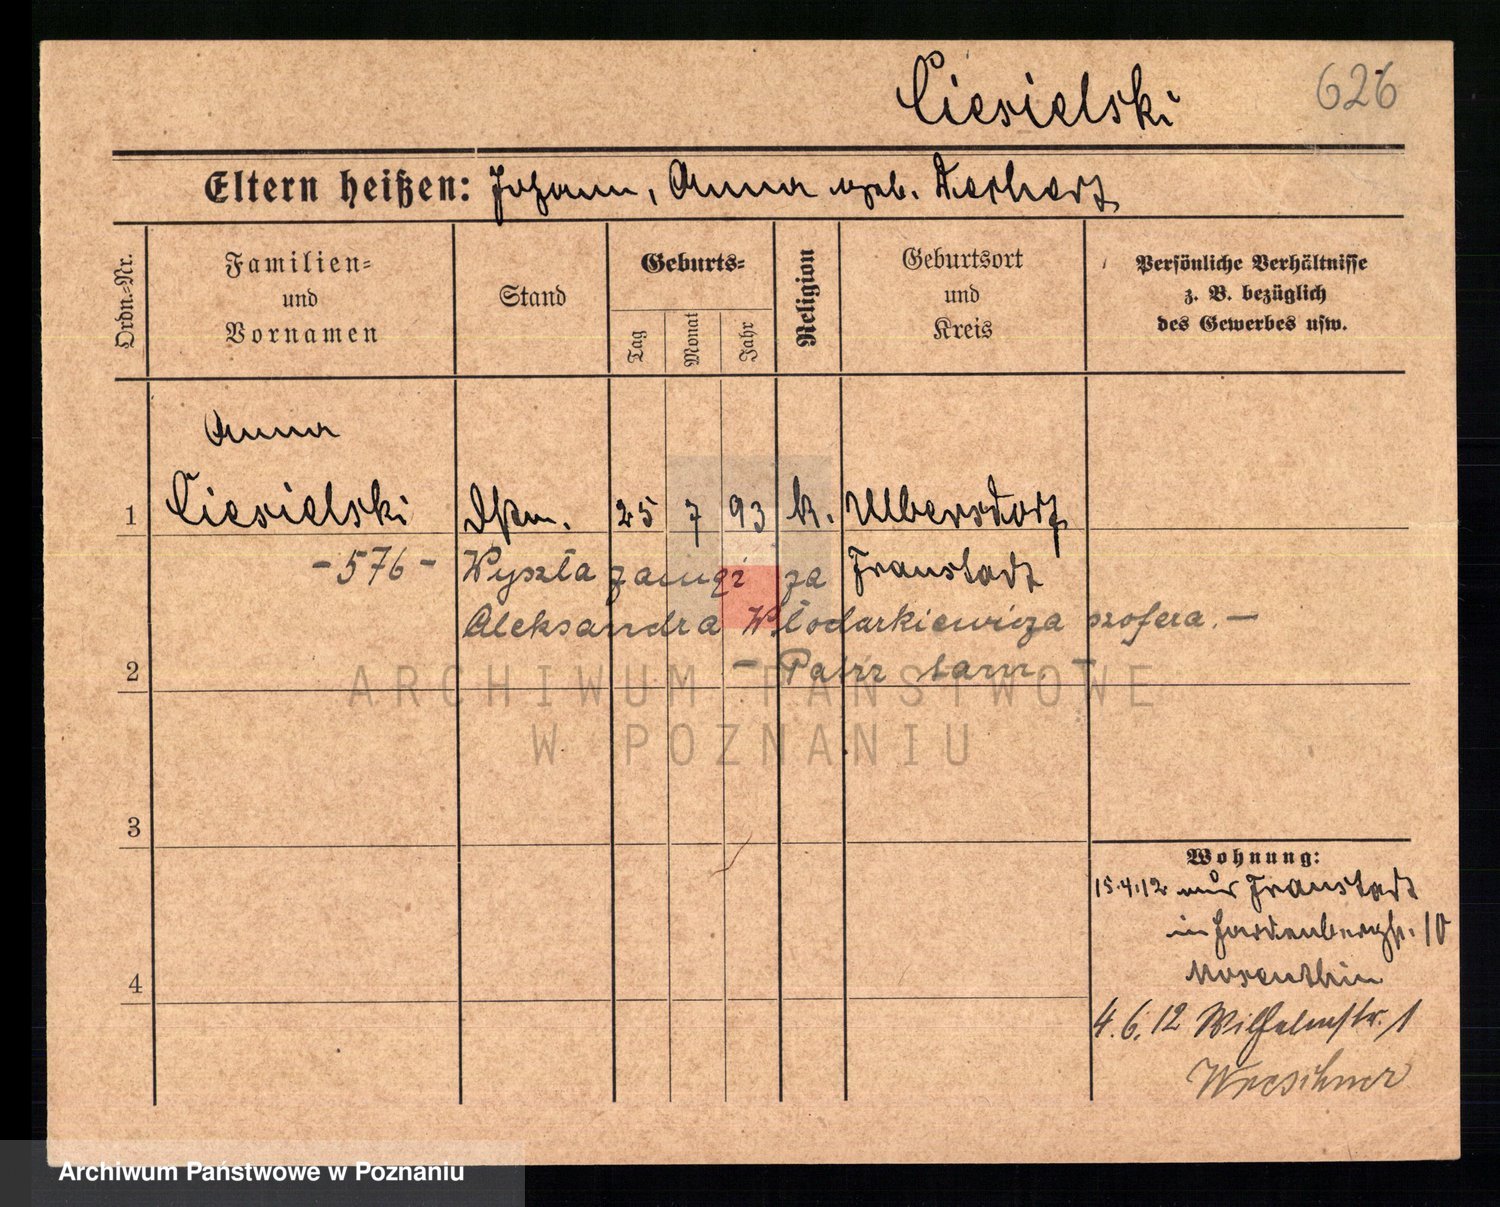 Ciesielski
626
Eltern heißen: Johann, Anna geb.
Ordn.-Nr.
Familien-
und
Vornamen
Stand
Geburts-
Tag
Monat
Jahr
Religion
Geburtsort
und
Kreis
Persönliche Verhältnisse
z. B. bezüglich
des Gewerbes usw.
Anna
1 Ciesielski Dstm. 25 7 93 k. Ulbersdorf
-576- Wyszła zamąż za Fraustadt
Aleksandra Włodarkiewicza szofera.-
2 - Patrz tam. -
ARCHIWUM PAŃSTWOWE
W POZNANIU
3
Wohnung:
15.4.12 aus Fraustadt
in Hardenbergstr. 10
4 Rosenthin
4.6.12 Wilhelmstr. 1
Wreschner
Archiwum Państwowe w Poznaniu